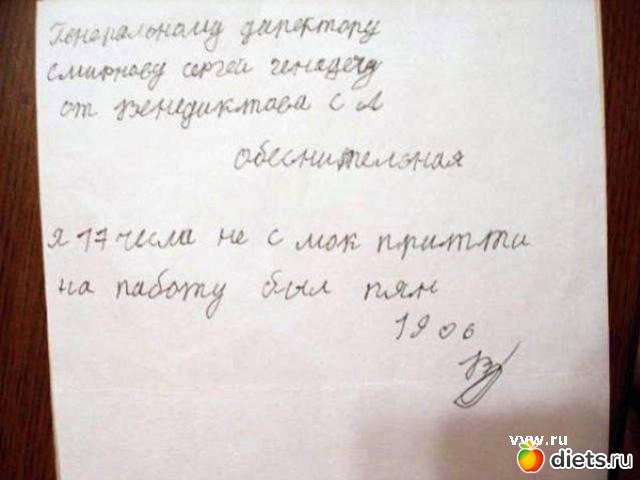 Генеральному директору
смирнову сергей генадечу
от Венедиктова С Л
обеснительная
я 17 числа не с мок притти
на работу был пян
19 06
vvw.ru
diets.ru